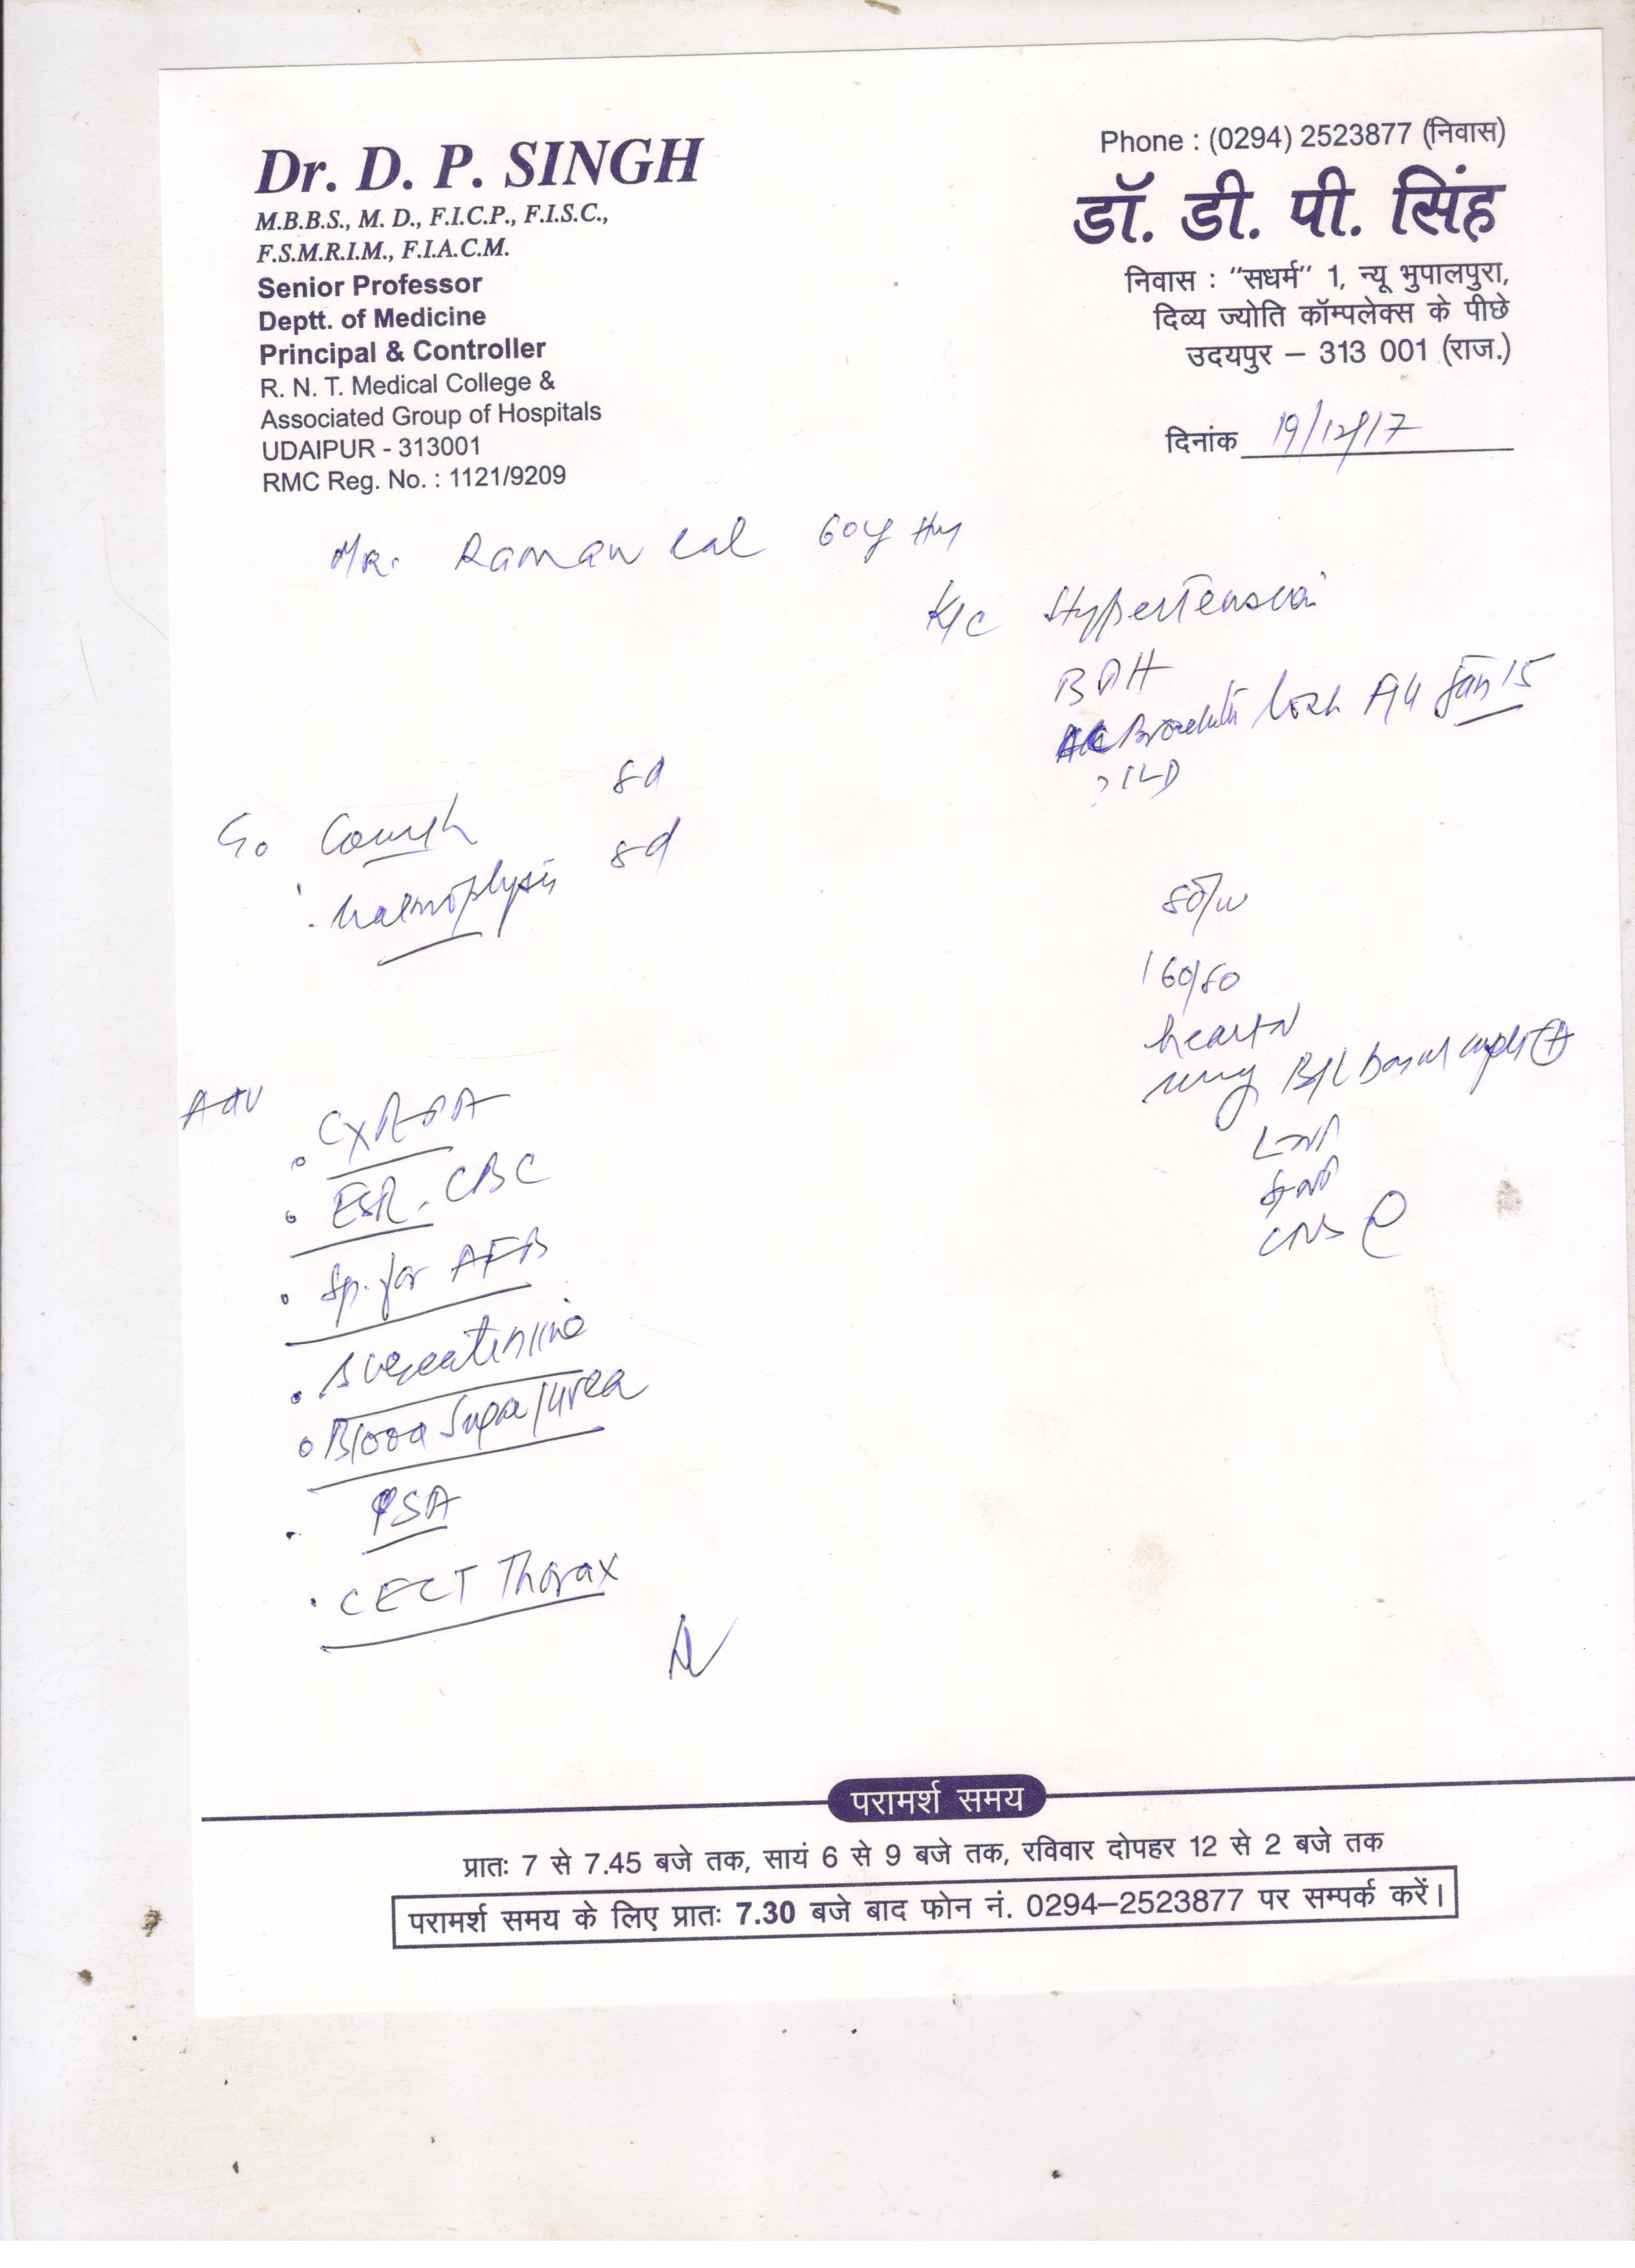 Dr. D. P. SINGH
M.B.B.S., M. D., F.I.C.P., F.I.S.C.,
F.S.M.R.I.M., F.I.A.C.M.
Senior Professor
Deptt. of Medicine
Principal & Controller
R. N. T. Medical College &
Associated Group of Hospitals
UDAIPUR - 313001
RMC Reg. No. : 1121/9209
Phone : (0294) 2523877 (निवास)
डॉ. डी. पी. सिंह
निवास : "सधर्म" 1, न्यू भुपालपुरा,
दिव्य ज्योति कॉम्पलेक्स के पीछे
उदयपुर – 313 001 (राज.)
दिनांक 19/12/17
MR. Raman Lal 60y
K/c Hypertension
BPH
Jan 15
? ILD
C/o Cough 8d
haemoptysis 8d
80/m
160/80
heart N
lung B/L basal (+)
CNS
Adv
CXR PA
ESR, CBC
Sp. for AFB
S creatinine
Blood Sugar/Urea
PSA
CECT Thorax
परामर्श समय
प्रातः 7 से 7.45 बजे तक, सायं 6 से 9 बजे तक, रविवार दोपहर 12 से 2 बजे तक
परामर्श समय के लिए प्रातः 7.30 बजे बाद फोन नं. 0294–2523877 पर सम्पर्क करें।